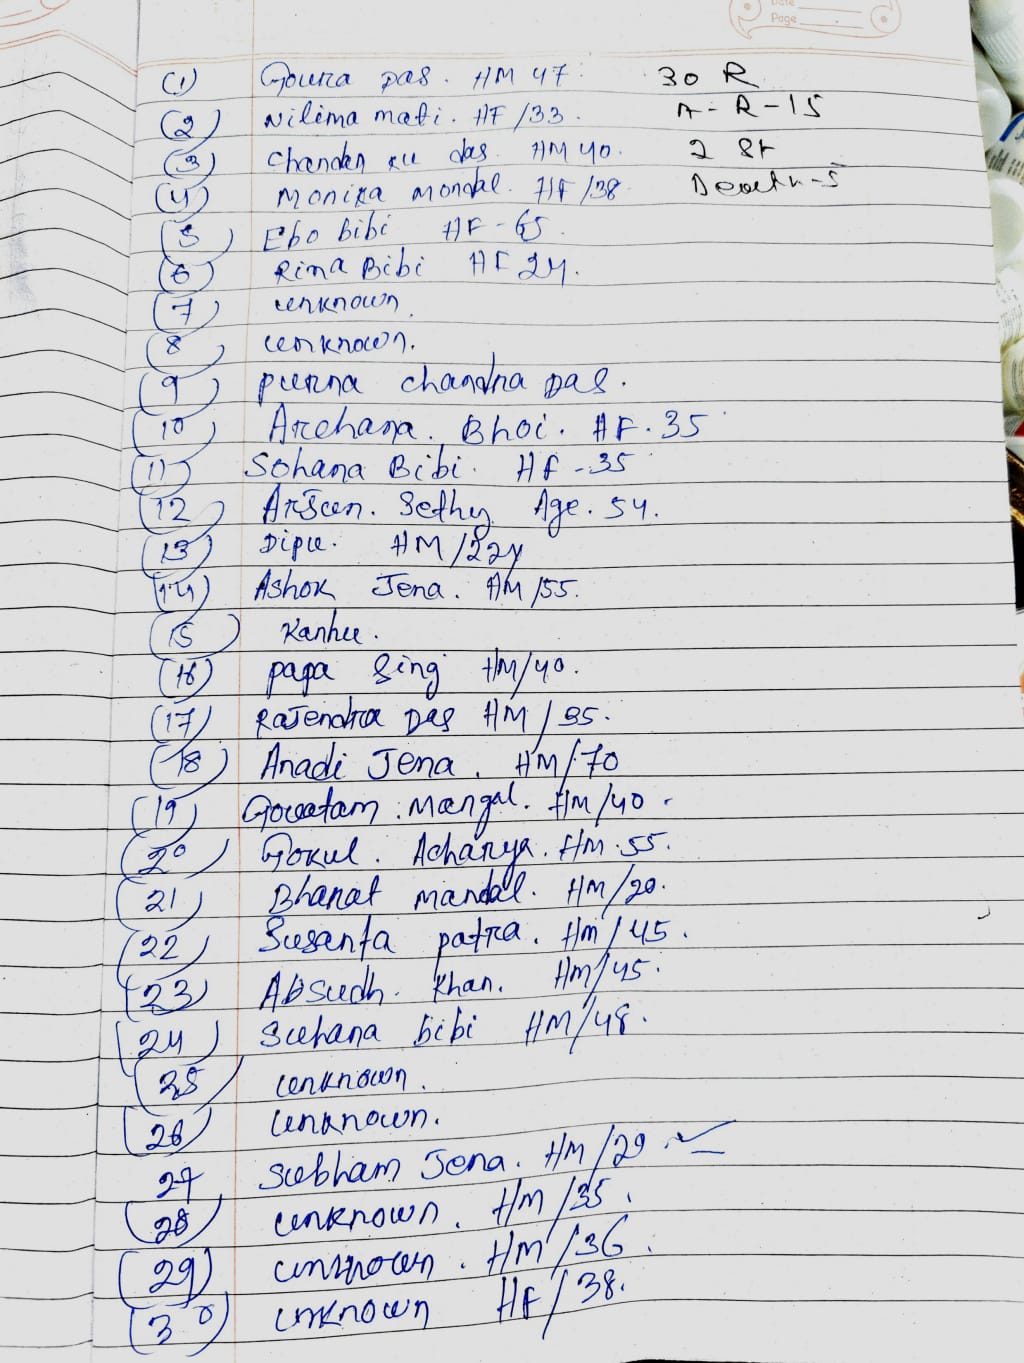 Date
Page
(1) Goura Das. HM 47. 30 R
(2) Nilima mati. HF /33. A-R-15
(3) Chandan ku das HM 40. 2 St
(4) Monika mondal. HF /38 Death-5
(5) Ebo bibi HF-65.
(6) Rima Bibi HF 24.
(7) unknown.
(8) unknown.
(9) purna chandra Das.
(10) Archana. Bhoi. HF.35
(11) Sohana Bibi. HF-35
(12) Arjun. Sethy Age.54.
(13) Dipu. HM/22y
(14) Ashok Jena. HM/55.
(15) Kanhu.
(16) papa Sing HM/40.
(17) Rajendra Das HM/35.
(18) Anadi Jena. HM/70
(19) Gouatam. Mangal. HM/40.
(20) Gokul. Acharya. HM.55.
(21) Bharat mandal. HM/20.
(22) Susanta patra. HM/45.
(23) Absudh. Khan. HM/45.
(24) Suhana bibi HM/48.
(25) unknown.
(26) unknown.
27 Subham Jena. HM/29
(28) unknown. HM/35.
(29) unknown. HM/36.
(30) unknown HF/38.